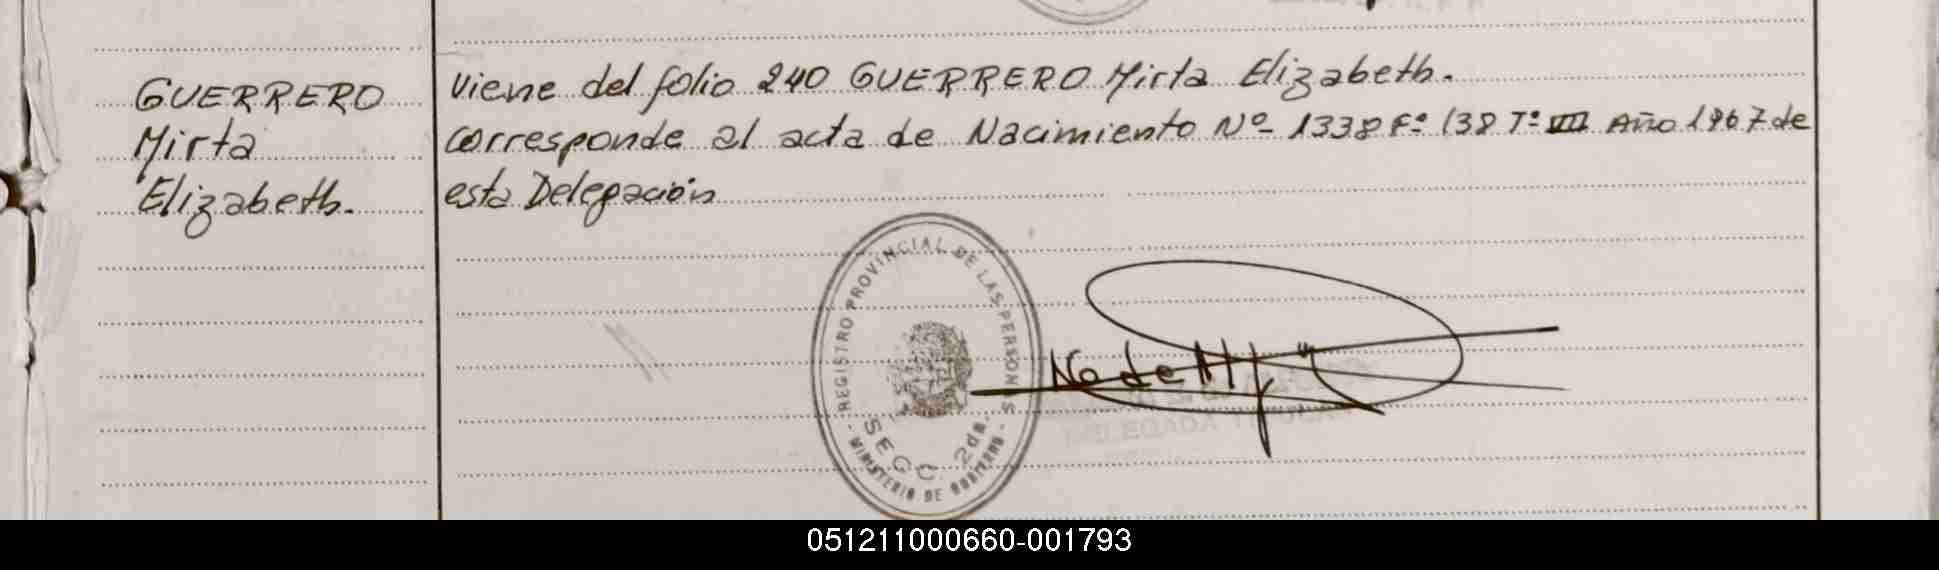 GUERRERO
Mirta
Elizabeth.
Viene del folio 240 GUERRERO Mirta Elizabeth.
corresponde al acta de Nacimiento Nº 1338 Fº 138 Tº VII Año 1967 de
esta Delegación
REGISTRO PROVINCIAL DE LAS PERSONAS
SECC. 2da.
- MINISTERIO DE GOBIERNO -
DELEGADA
051211000660-001793